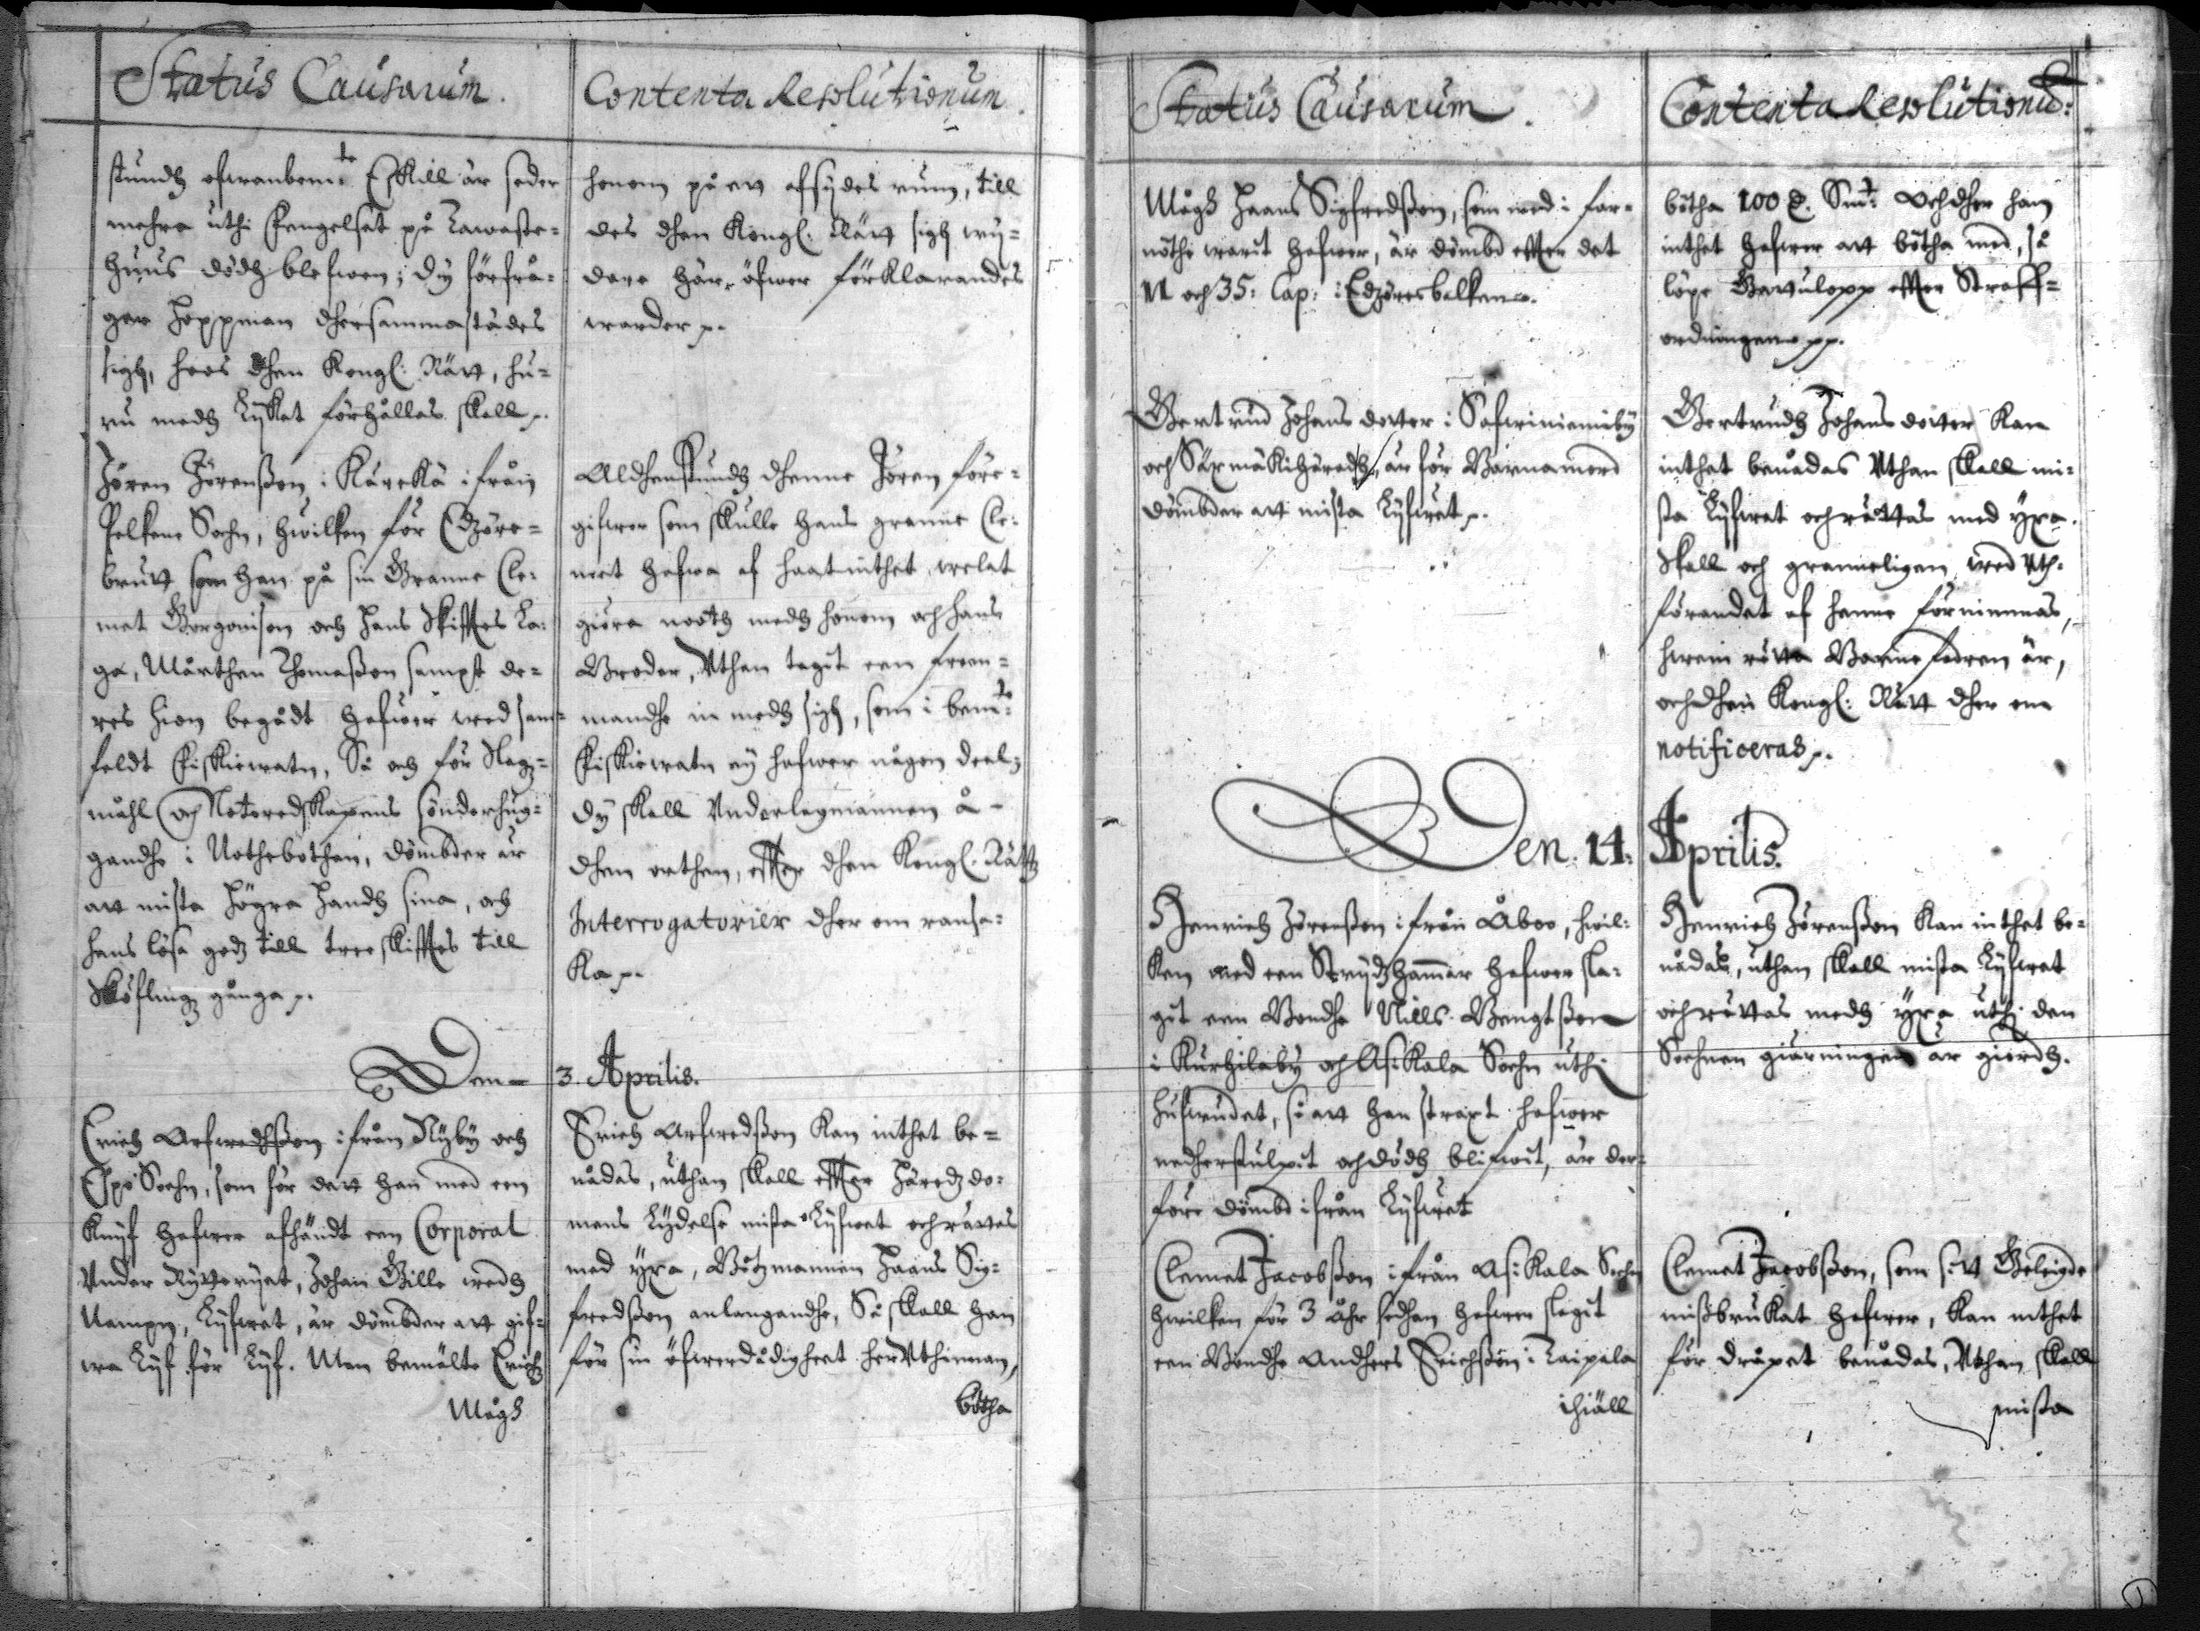 Status Causarum.
stundh ofwanbem:te Eskill är seder
mehra uthi fengelset på Tawaste-
huus dödh blefwen; dy förfrå-
gar Hoppman dhersammastädes
sigh, hoos dhen Kongl: Rätt, hu-
ru medh lijket förhållas skall.
Jören Jörenßon i Kärckä ifrån
Pelkene Sochn, hwilken för Edzöre-
brutt som han på sin Granne Cle-
met Gorgonison och Hans Skifftes la-
ga, Mårthen Thomaßon sampt de-
res hion begådt hafwer wed sam-
feldt fiskiewatn, Så och för Slagz-
måhl och Notoredskapens sönderhug-
gandhe i Nothebothen, dömbder är
att mista högra handh sina, och
hans lösa godz till tree skifftes till
Sköfling gånga.
Den
Erich Arfwedhßon ifrån Nyby och
Espo Sochn, som för dett han med een
Knijf hafwer afhändt een Corporal
Under Rytteryet, Johan Gille wedh
Nampn, lijfwet, är dömbder att gif-
wa lijf för lijf. Men bemälte Erichz
Mågh
Contenta Resolutionum.
honom på ett afsydes rum, till
des dhen Kongl: Rätt sigh wij-
dare här öfwer förklarandes
warder.
Aldhenstundh dhenne Jören före-
gifwer som skulle hans granne Cle-
met hafwa af haat inthet welat
giöra nooth medh honom och hans
Broder, Uthan tagit een frem-
mandhe in medh sigh, som i bem:te
fiskiewatn ey hafwer någon deel;
dy skall Underlagmannen å
dhen orthen, effter dhen Kongl. Rätz
Interrogatorier dher om ransa-
ka.
3 Aprilis.
Erich Arfwedßon kan inthet be-
nådas, uthan skall effter häredzdo-
mens lydelse mista lijfwet och rättas
med yxa, Båtzmannen Haans Sig-
fredßon anlangandhe, Så skall han
för sin öfwerdådigheet her Uthinnan,
bötha
Status Causarum.
Mågh Haans Sigfredßon, som med i för-
nöthe warit hafwer, är dömbd effter det
11 och 35: Cap: i Edzöresbalken.
Gertrud Johans dotter i Safwiniemiby
och Säxmäki häredh, är för Barnamord
dömbder att mista lijfwet.
Den. 14:
Henrich Jörenßon ifrån Åboo, hwil-
ken med een Strydzhammar hafwer sla-
git een Bondhe Nills Bengtßon
i Kurhilaby och Asikala Sochn uthi
hufwudet, så att han straxt hafwer
nedherstulpit och dödh blifwit, är der-
före dömbd ifrån lijfwet
Clemet Jacobßon ifrån Asikala Sochn
hwilken för 3 åhr sedhan hafwer slagit
een Bondhe Andhers Erichßon i Laipala
ihiäll
Contenta Resolutionu:
bötha 100 D. Sm:t Och dher han
inthet hafwer att bötha med, så
löpe Gatulopp effter Straff-
ordningen.
Gertrudh Johans dotter kan
inthet benådas Uthan skall mi-
sta lijfwet och rättas med yxa.
Skall och granneligen wed Uth-
förandet af henne förnimmas,
hwem rätta Barnefadren är,
och dhen Kongl: Rätt dher om
notificeras.
Aprilis.
Henrich Jörenßon kan inthet be-
nådas, uthan skall mista lijfwet
och rättas medh yxa uthi den
Sochnen giärningen är giordh.
Clemet Jacobßon, som sitt Geleigde
mißbrukat hafwer, kan inthet
för dråpet benådas, Uthan skall
mista